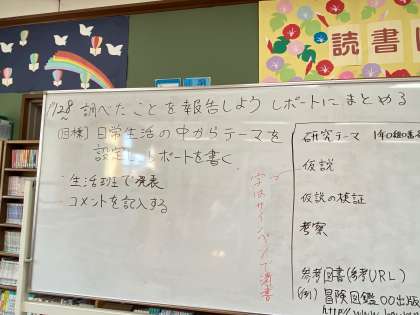 1/28 調べたことを報告しよう レポートにまとめる
[目標] 日常生活の中からテーマを
設定し レポートを書く
・生活班で発表
・コメントを記入する
字はサインペンで清書
研究テーマ 1年0組0番
仮説
仮説の検証
考察
参考図書(参考URL)
(例) 冒険図鑑 〇〇出版
読書